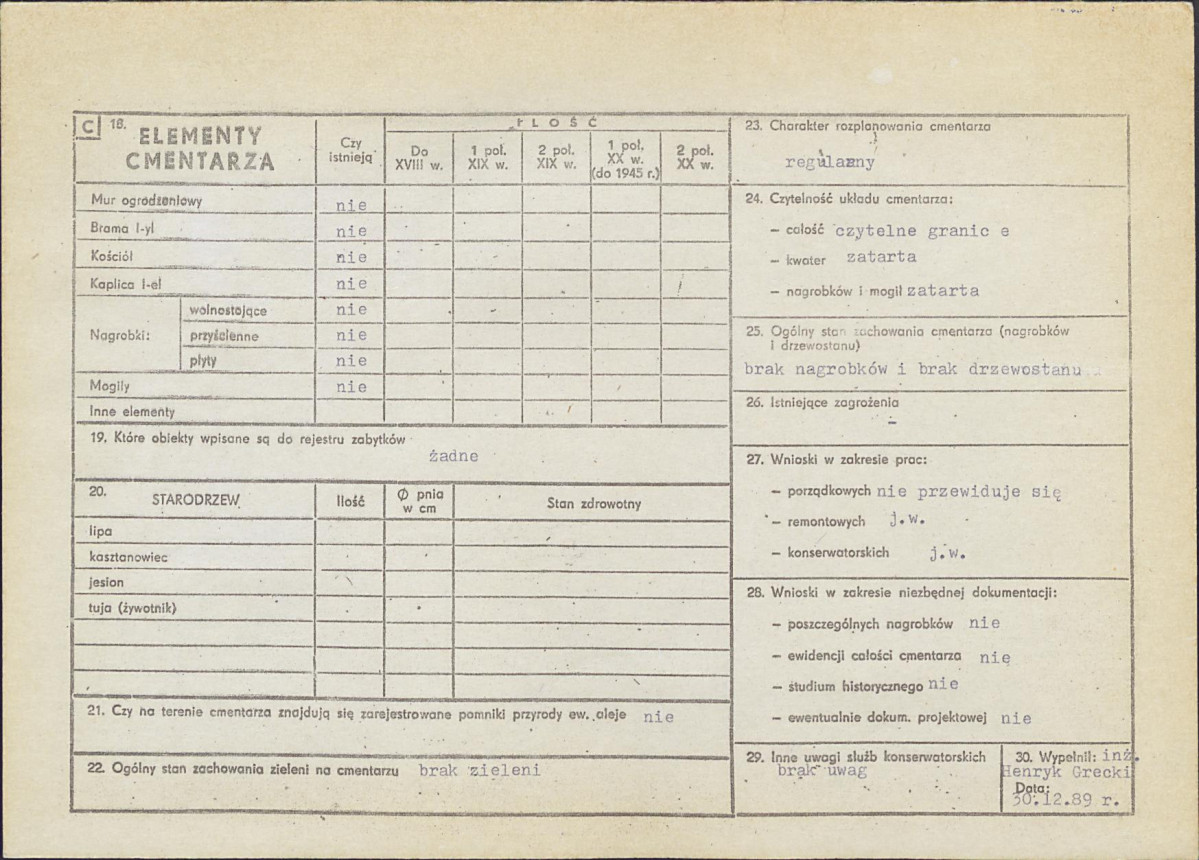 C 18. ELEMENTY
CMENTARZA
Czy
istnieją
IŁOŚĆ
Do
XVIII w.
1 poł.
XIX w.
2 poł.
XIX w.
1 poł.
XX w.
(do 1945 r.)
2 poł.
XX w.
Mur ogrodzeniowy nie
Brama l-yl nie
Kościół nie
Kaplica l-el nie
Nagrobki:
wolnostojące nie
przyścienne nie
płyty nie
Mogiły nie
Inne elementy
19. Które obiekty wpisane są do rejestru zabytków
żadne
20. STARODRZEW
Ilość
Ø pnia
w cm
Stan zdrowotny
lipa
kasztanowiec
jesion
tuja (żywotnik)
21. Czy na terenie cmentarza znajdują się zarejestrowane pomniki przyrody ew. aleje nie
22. Ogólny stan zachowania zieleni na cmentarzu brak zieleni
23. Charakter rozplanowania cmentarza
regularny
24. Czytelność układu cmentarza:
– całość czytelne granic e
– kwater zatarta
– nagrobków i mogił zatarta
25. Ogólny stan zachowania cmentarza (nagrobków
i drzewostanu)
brak nagrobków i brak drzewostanu
26. Istniejące zagrożenia
–
27. Wnioski w zakresie prac:
– porządkowych nie przewiduje się
– remontowych j.w.
– konserwatorskich j.w.
28. Wnioski w zakresie niezbędnej dokumentacji:
– poszczególnych nagrobków nie
– ewidencji całości cmentarza nie
– studium historycznego nie
– ewentualnie dokum. projektowej nie
29. Inne uwagi służb konserwatorskich
brak uwag
30. Wypełnił: inż.
Henryk Grecki
Data:
30.12.89 r.